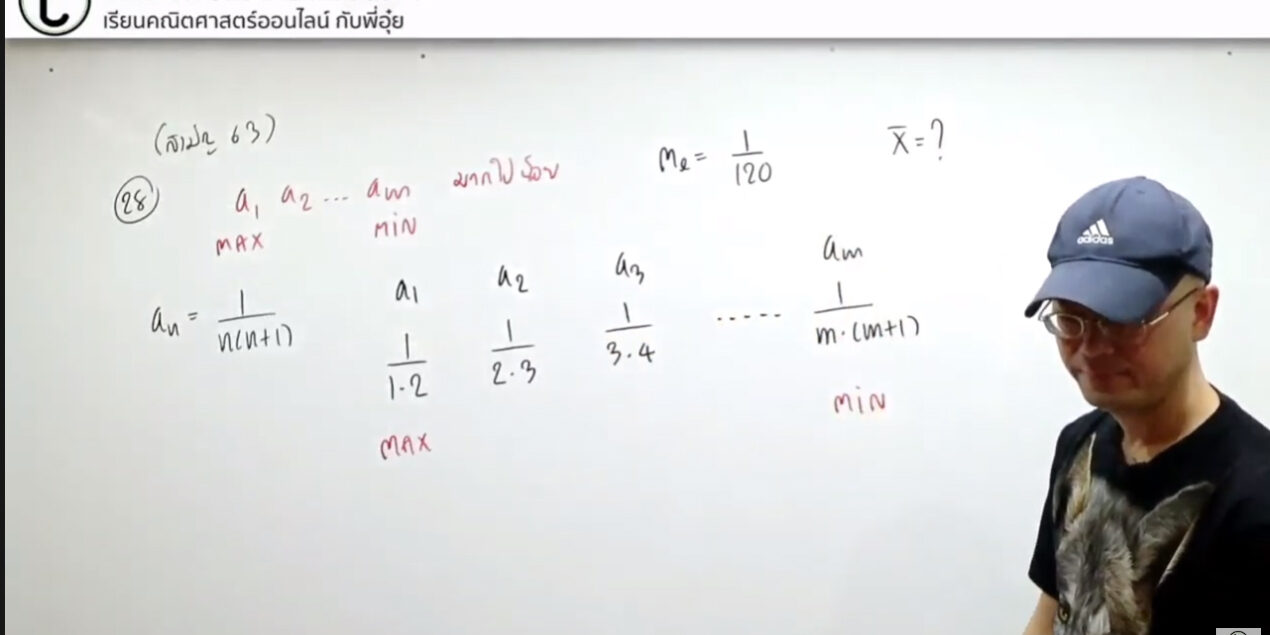 เรียนคณิตศาสตร์ออนไลน์ กับพี่อุ๋ย
(สามัญ 63)
28 a₁ a₂ ... aₘ มากไปน้อย Me = 1/120 x̄ = ?
MAX MIN
aₙ = 1/n(n+1)
a₁ a₂ a₃ aₘ
1/1·2 1/2·3 1/3·4 ..... 1/m·(m+1)
MAX MIN
adidas